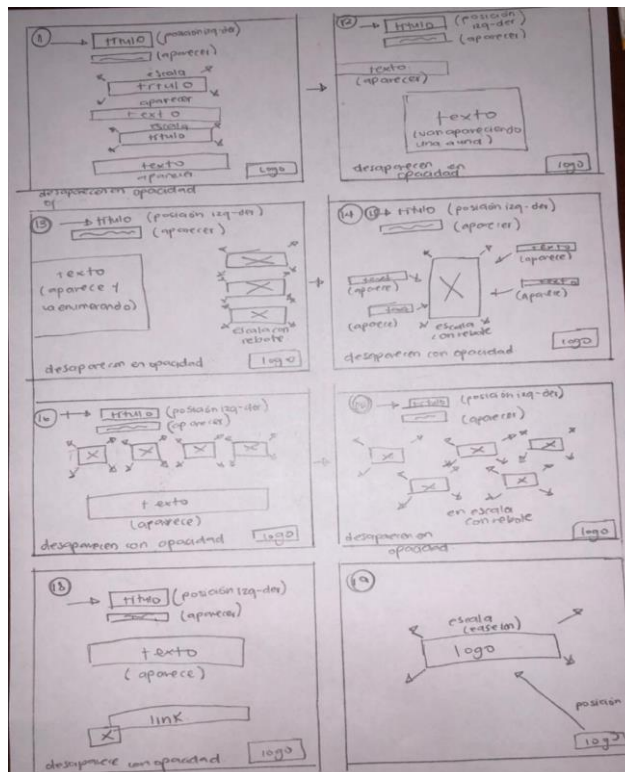 título (posición izq-der)
(aparecer)
escala
título
aparecer
texto
escala
título
texto
aparecer
logo
desaparecen en opacidad
12
título (posición
izq-der)
(aparecer)
texto
(aparecer)
texto
(van apareciendo
una a una)
desaparecen en
opacidad
logo
13
título (posición izq-der)
(aparecer)
texto
(aparece y
va enumerando)
escala con
rebote
desaparecen en opacidad
logo
14 15 título (posición izq-der)
(aparecer)
texto
(aparece)
(aparece)
texto
(aparece)
(aparece)
escala
con rebote
desaparecen con opacidad
logo
16
título (posición izq-der)
(aparecer)
texto
(aparece)
desaparecen con opacidad
logo
título (posición izq-der)
(aparecer)
en escala
con rebote
desaparecen en
opacidad
logo
18
título (posición izq-der)
(aparecer)
texto
(aparece)
link
desaparece con opacidad
logo
19
escala
logo
posición
logo